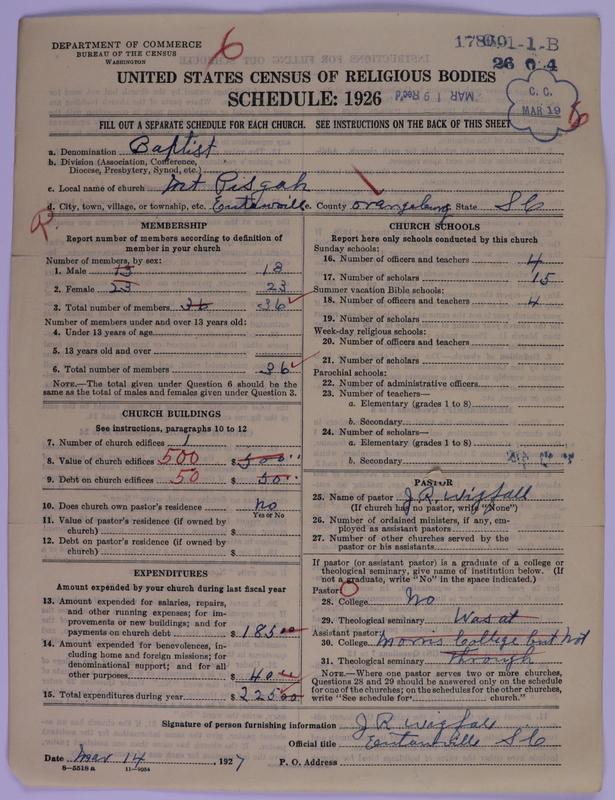 DEPARTMENT OF COMMERCE
BUREAU OF THE CENSUS
WASHINGTON
6
1-1-B
26 0 4
UNITED STATES CENSUS OF RELIGIOUS BODIES
SCHEDULE: 1926
MAR 19 Rec'd
C. C.
MAR 19
FILL OUT A SEPARATE SCHEDULE FOR EACH CHURCH. SEE INSTRUCTIONS ON THE BACK OF THIS SHEET
a. Denomination Baptist
b. Division (Association, Conference, Diocese, Presbytery, Synod, etc.)
c. Local name of church Mt Pisgah
d. City, town, village, or township, etc. Eutawville e. County Orangeburg State S C
MEMBERSHIP
Report number of members according to definition of
member in your church
Number of members, by sex:
1. Male 13 18
2. Female 23 23
3. Total number of members 36 36
Number of members under and over 13 years old:
4. Under 13 years of age
5. 13 years old and over
6. Total number of members 36
NOTE.—The total given under Question 6 should be
same as the total of males and females given under Question 3.
CHURCH BUILDINGS
See instructions, paragraphs 10 to 12
7. Number of church edifices 1
8. Value of church edifices 500 $ 500
9. Debt on church edifices 50 $ 50
10. Does church own pastor's residence no
Yes or No
11. Value of pastor's residence (if owned by
church) $
12. Debt on pastor's residence (if owned by
church) $
EXPENDITURES
Amount expended by your church during last fiscal year
13. Amount expended for salaries, repairs,
and other running expenses; for im-
provements or new buildings; and for
payments on church debt $ 185 00
14. Amount expended for benevolences, in-
cluding home and foreign missions; for
denominational support; and for all
other purposes $ 40
15. Total expenditures during year $ 225 00
CHURCH SCHOOLS
Report here only schools conducted by this church
Sunday schools:
16. Number of officers and teachers 4
17. Number of scholars 15
Summer vacation Bible schools:
18. Number of officers and teachers 4
19. Number of scholars
Week-day religious schools:
20. Number of officers and teachers
21. Number of scholars
Parochial schools:
22. Number of administrative officers
23. Number of teachers—
a. Elementary (grades 1 to 8)
b. Secondary
24. Number of scholars—
a. Elementary (grades 1 to 8)
b. Secondary
PASTOR
25. Name of pastor J. R. Wigfall
(If church has no pastor, write "None")
26. Number of ordained ministers, if any, em-
ployed as assistant pastors
27. Number of other churches served by the
pastor or his assistants
If pastor (or assistant pastor) is a graduate of a college or
theological seminary, give name of institution below. (If
not a graduate, write "No" in the space indicated.)
Pastor:
28. College No
29. Theological seminary Was at
Assistant pastor:
30. College Morris College but Not
31. Theological seminary through
NOTE.—Where one pastor serves two or more churches,
Questions 28 and 29 should be answered only on the schedule
for one of the churches; on the schedules for the other churches,
write "See schedule for church."
Signature of person furnishing information J R Wigfall
Official title Eutawville S C
Date Mar 14, 1927 P. O. Address
8—5518 a 11—9034